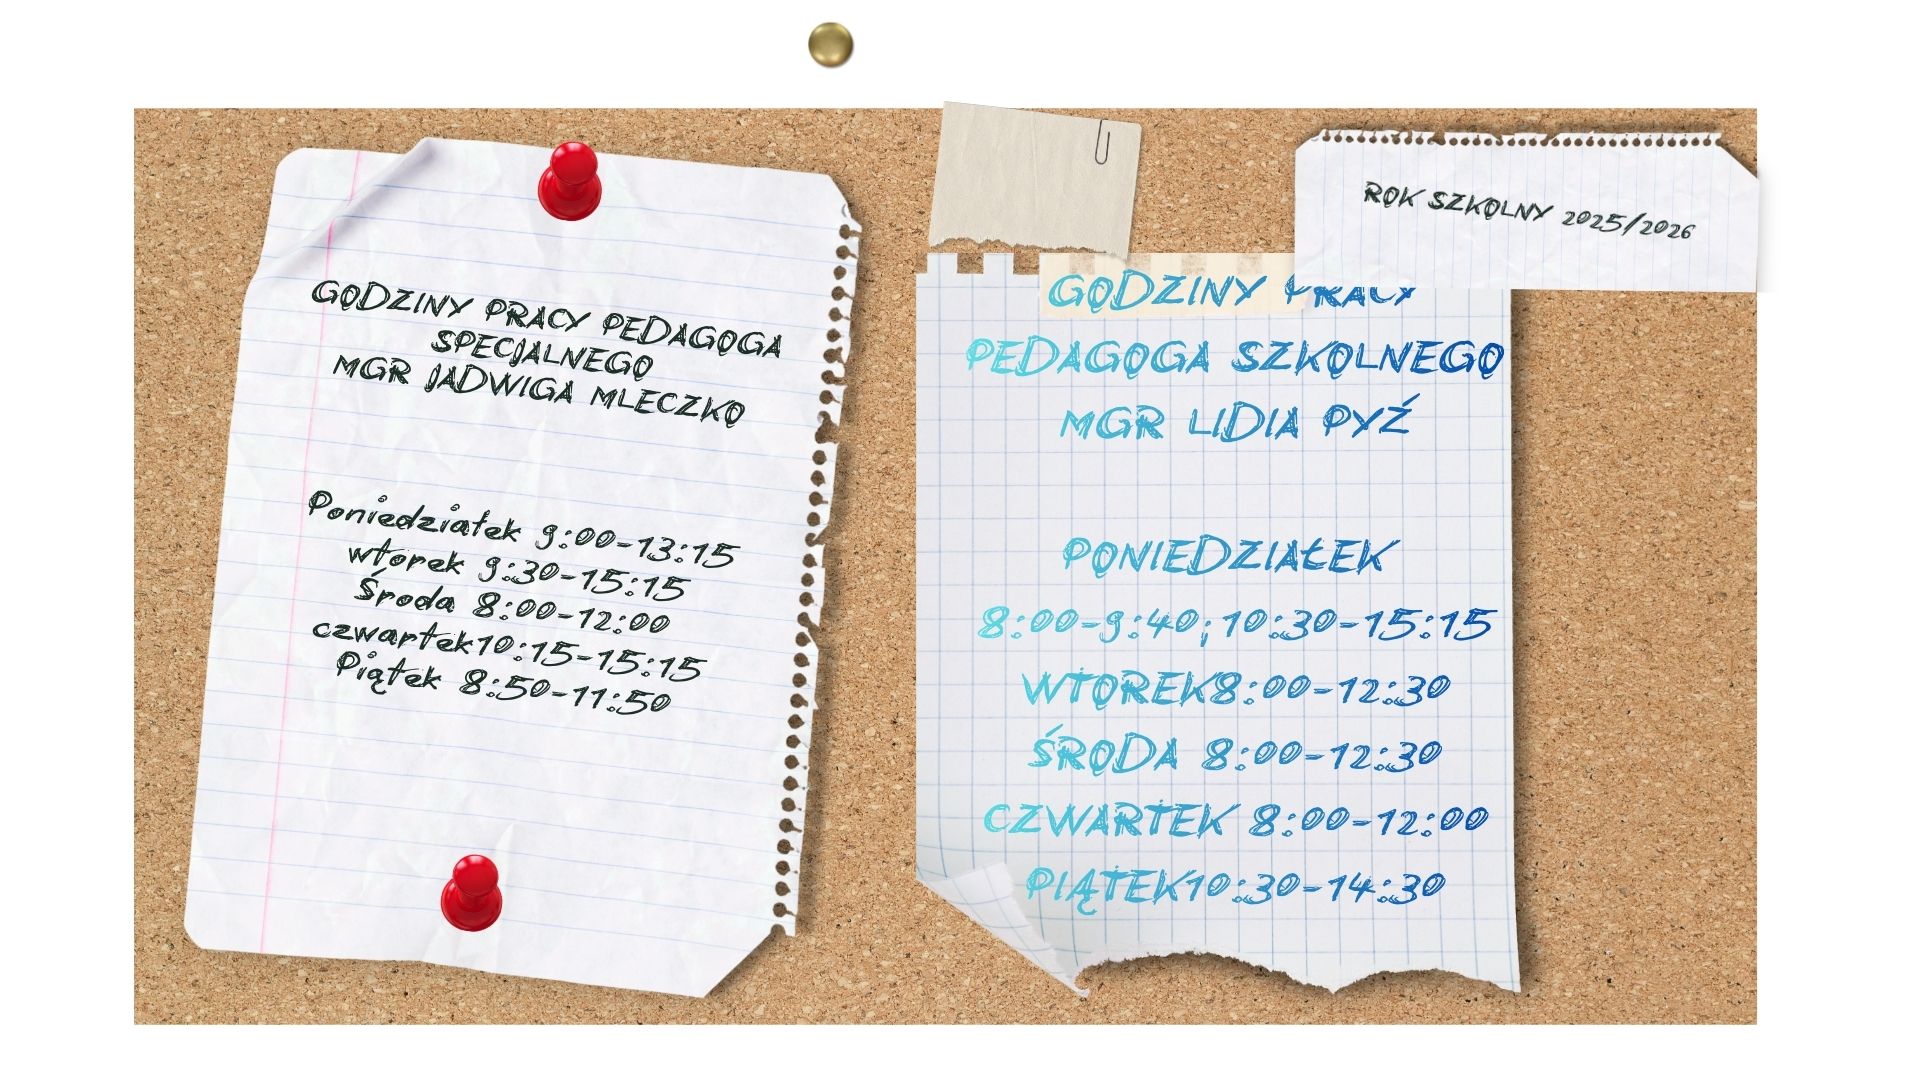 GODZINY PRACY PEDAGOGA
SPECJALNEGO
MGR JADWIGA MLECZKO
Poniedziałek 9:00-13:15
wtorek 9:30-15:15
Środa 8:00-12:00
czwartek10:15-15:15
Piątek 8:50-11:50
ROK SZKOLNY 2025/2026
GODZINY PRACY
PEDAGOGA SZKOLNEGO
MGR LIDIA PYŹ
PONIEDZIAŁEK
8:00-9:40;10:30-15:15
WTOREK8:00-12:30
ŚRODA 8:00-12:30
CZWARTEK 8:00-12:00
PIĄTEK10:30-14:30